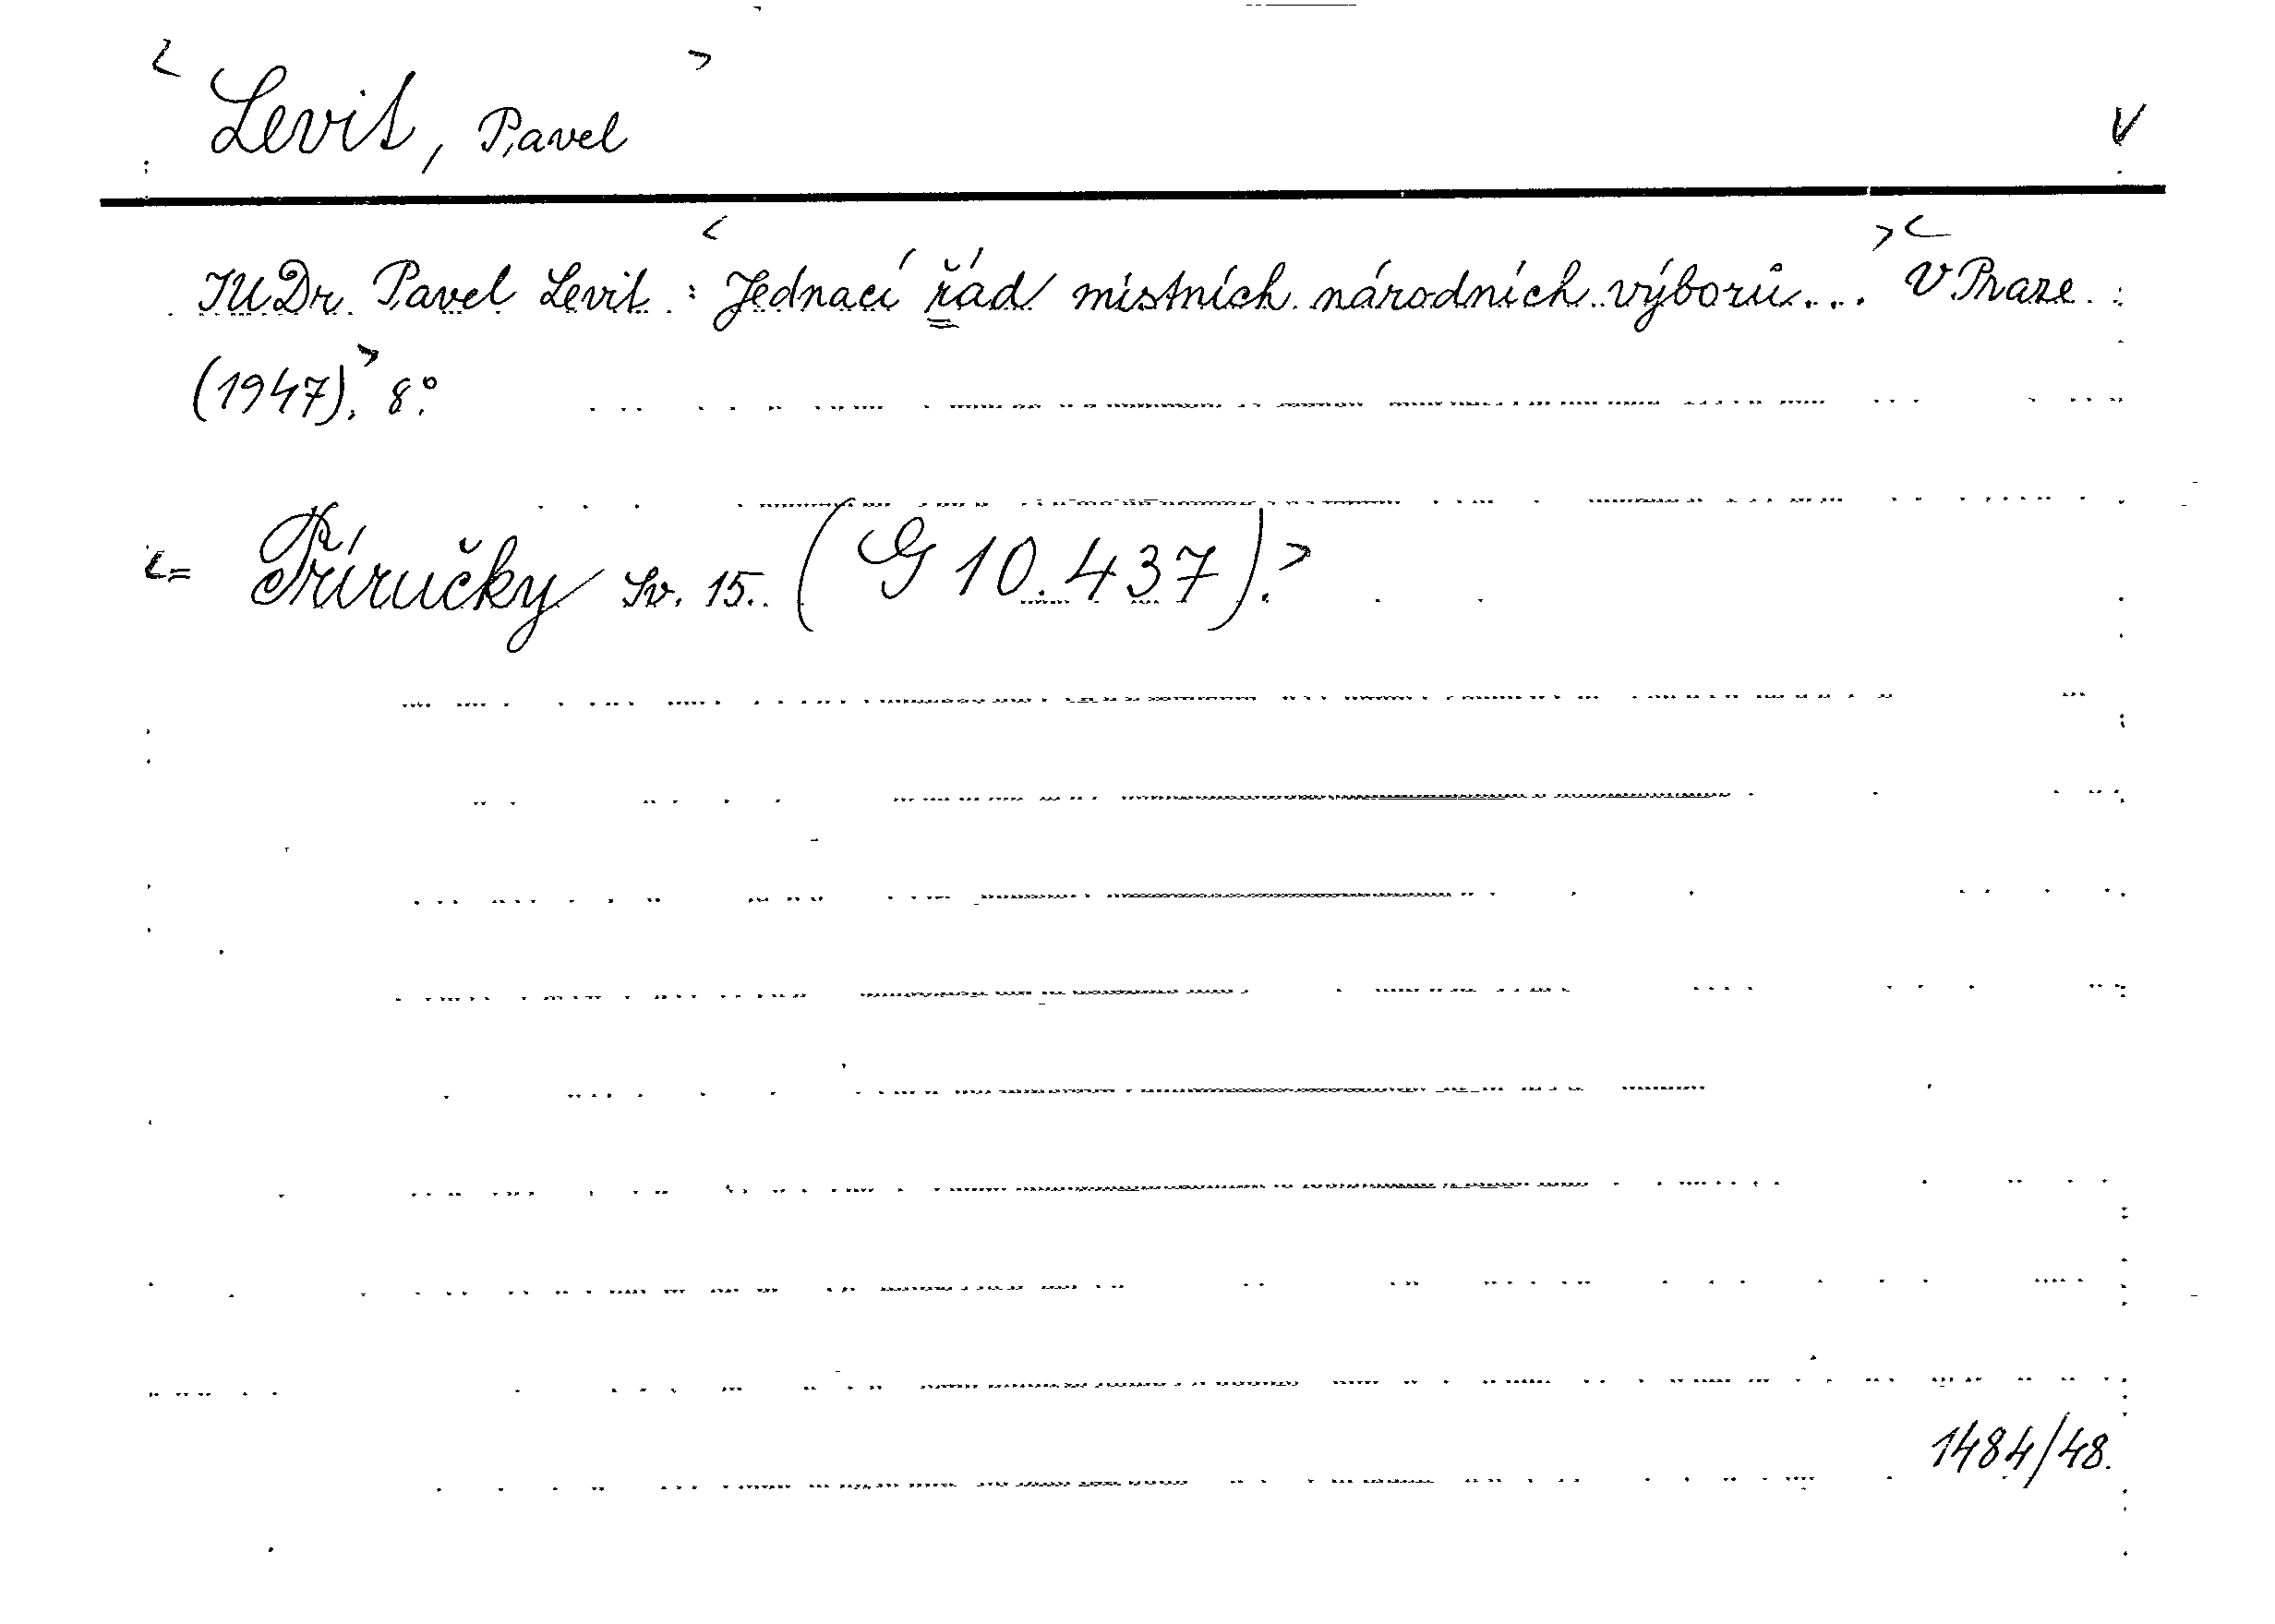 < Levit, Pavel > V
JUDr. Pavel Levit : < Jednací řád místních národních výborů... > < V Praze
(1947). > 8°.
< = Příručky sv. 15. (G 10.437). >
1484/48.